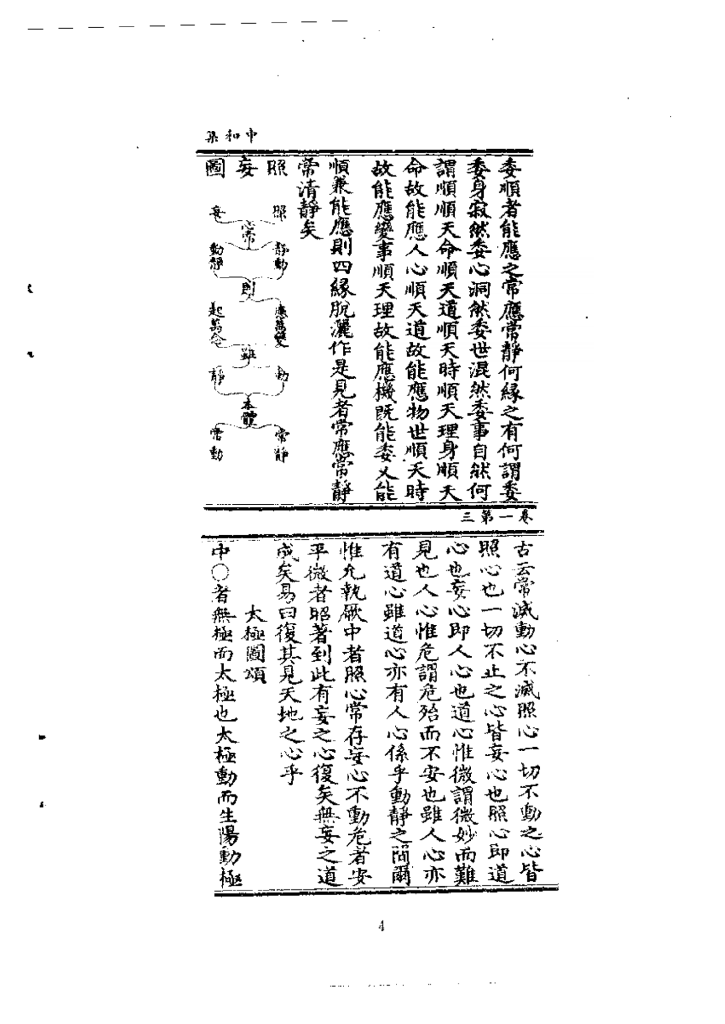 中和集
委順者能應之常應常靜何緣之有何謂委
委身寂然委心洞然委世混然委事自然何
謂順順天命順天道順天時順天理身順天
命故能應人心順天道故能應物世順天時
故能應變事順天理故能應機既能委又能
順兼能應則四緣脫灑作是見者常應常靜
常清靜矣
照妄圖
照 妄
常心
靜動 動靜
則
應萬變 起萬念
雖
動 靜
本體
常靜 常動
卷一第三
古云常滅動心不滅照心一切不動之心皆
照心也一切不止之心皆妄心也照心即道
心也妄心即人心也道心惟微謂微妙而難
見也人心惟危謂危殆而不安也雖人心亦
有道心雖道心亦有人心係乎動靜之間爾
惟允執厥中者照心常存妄心不動危者安
平微者昭著到此有妄之心復矣無妄之道
成矣易曰復其見天地之心乎
太極圖頌
中○者無極而太極也太極動而生陽動極
4